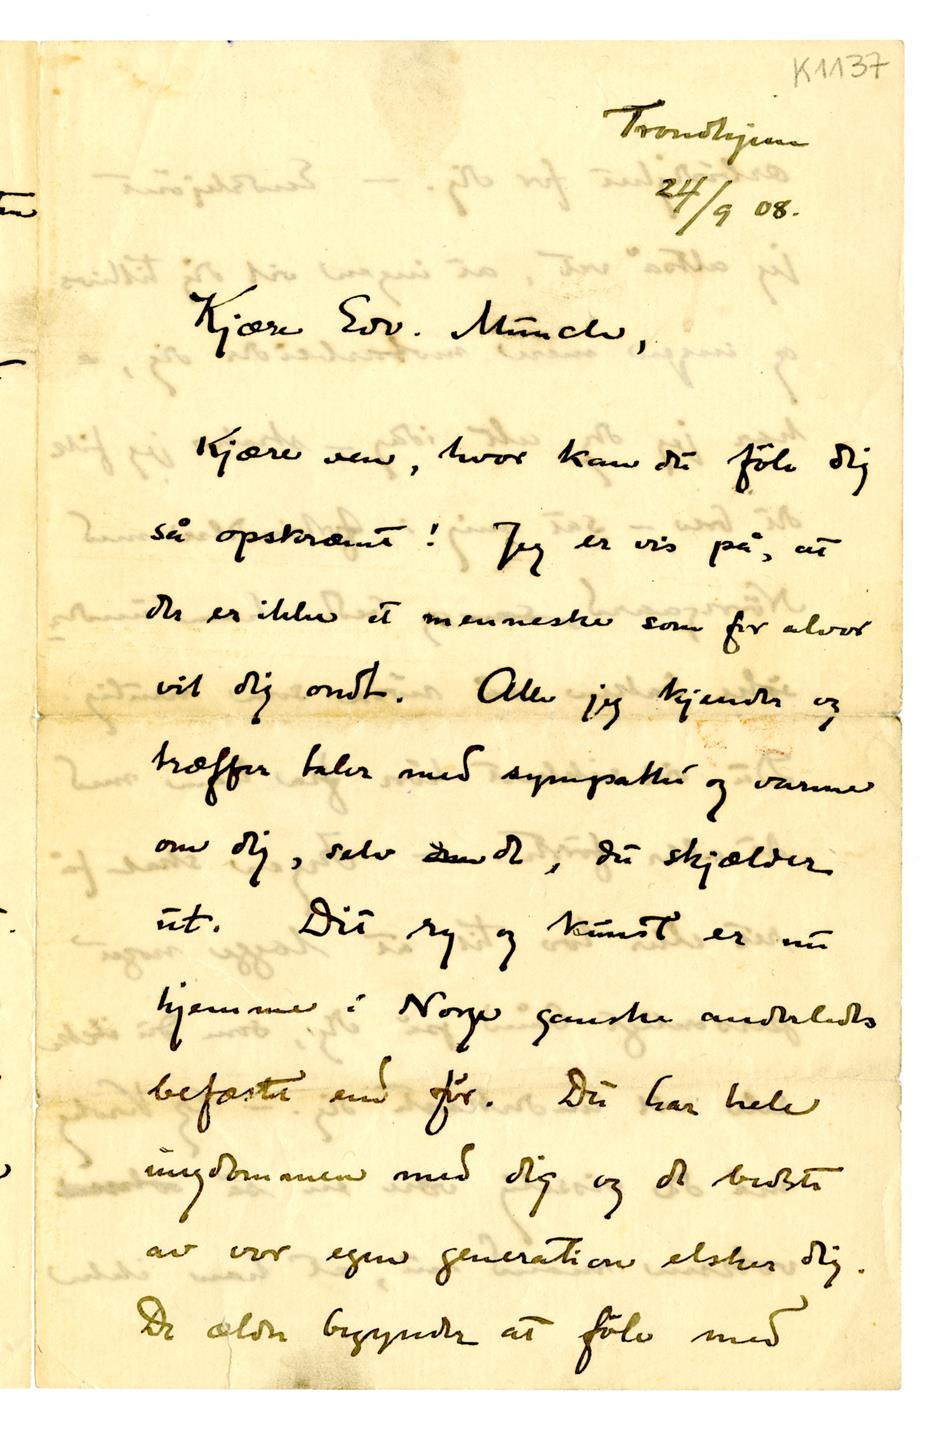 K1137
Trondhjem
24/9 08.
Kjære Edv. Munch,
Kjære ven, hvor kan du föle dig
så opskræmt! Jeg er vis på, at
der er ikke et menneske som for alvor
vil dig ondt. Alle jeg kjender og
træffer taler med sympathi og varme
om dig, selv de, du skjælder
ut. Dit ry og kunst er nu
hjemme i Norge ganske anderledes
befæstet end för. Du har hele
ungdommen med dig og de bedste
av vor egen generation elsker dig.
De ældre begynder at föle med